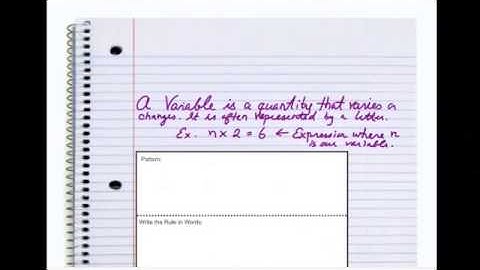 A Variable is a quantity that varies or
changes. It is often represented by a letter.
Ex. n x 2 = 6 ← Expression where n
is our variable.
Pattern:
Write the Rule in Words: